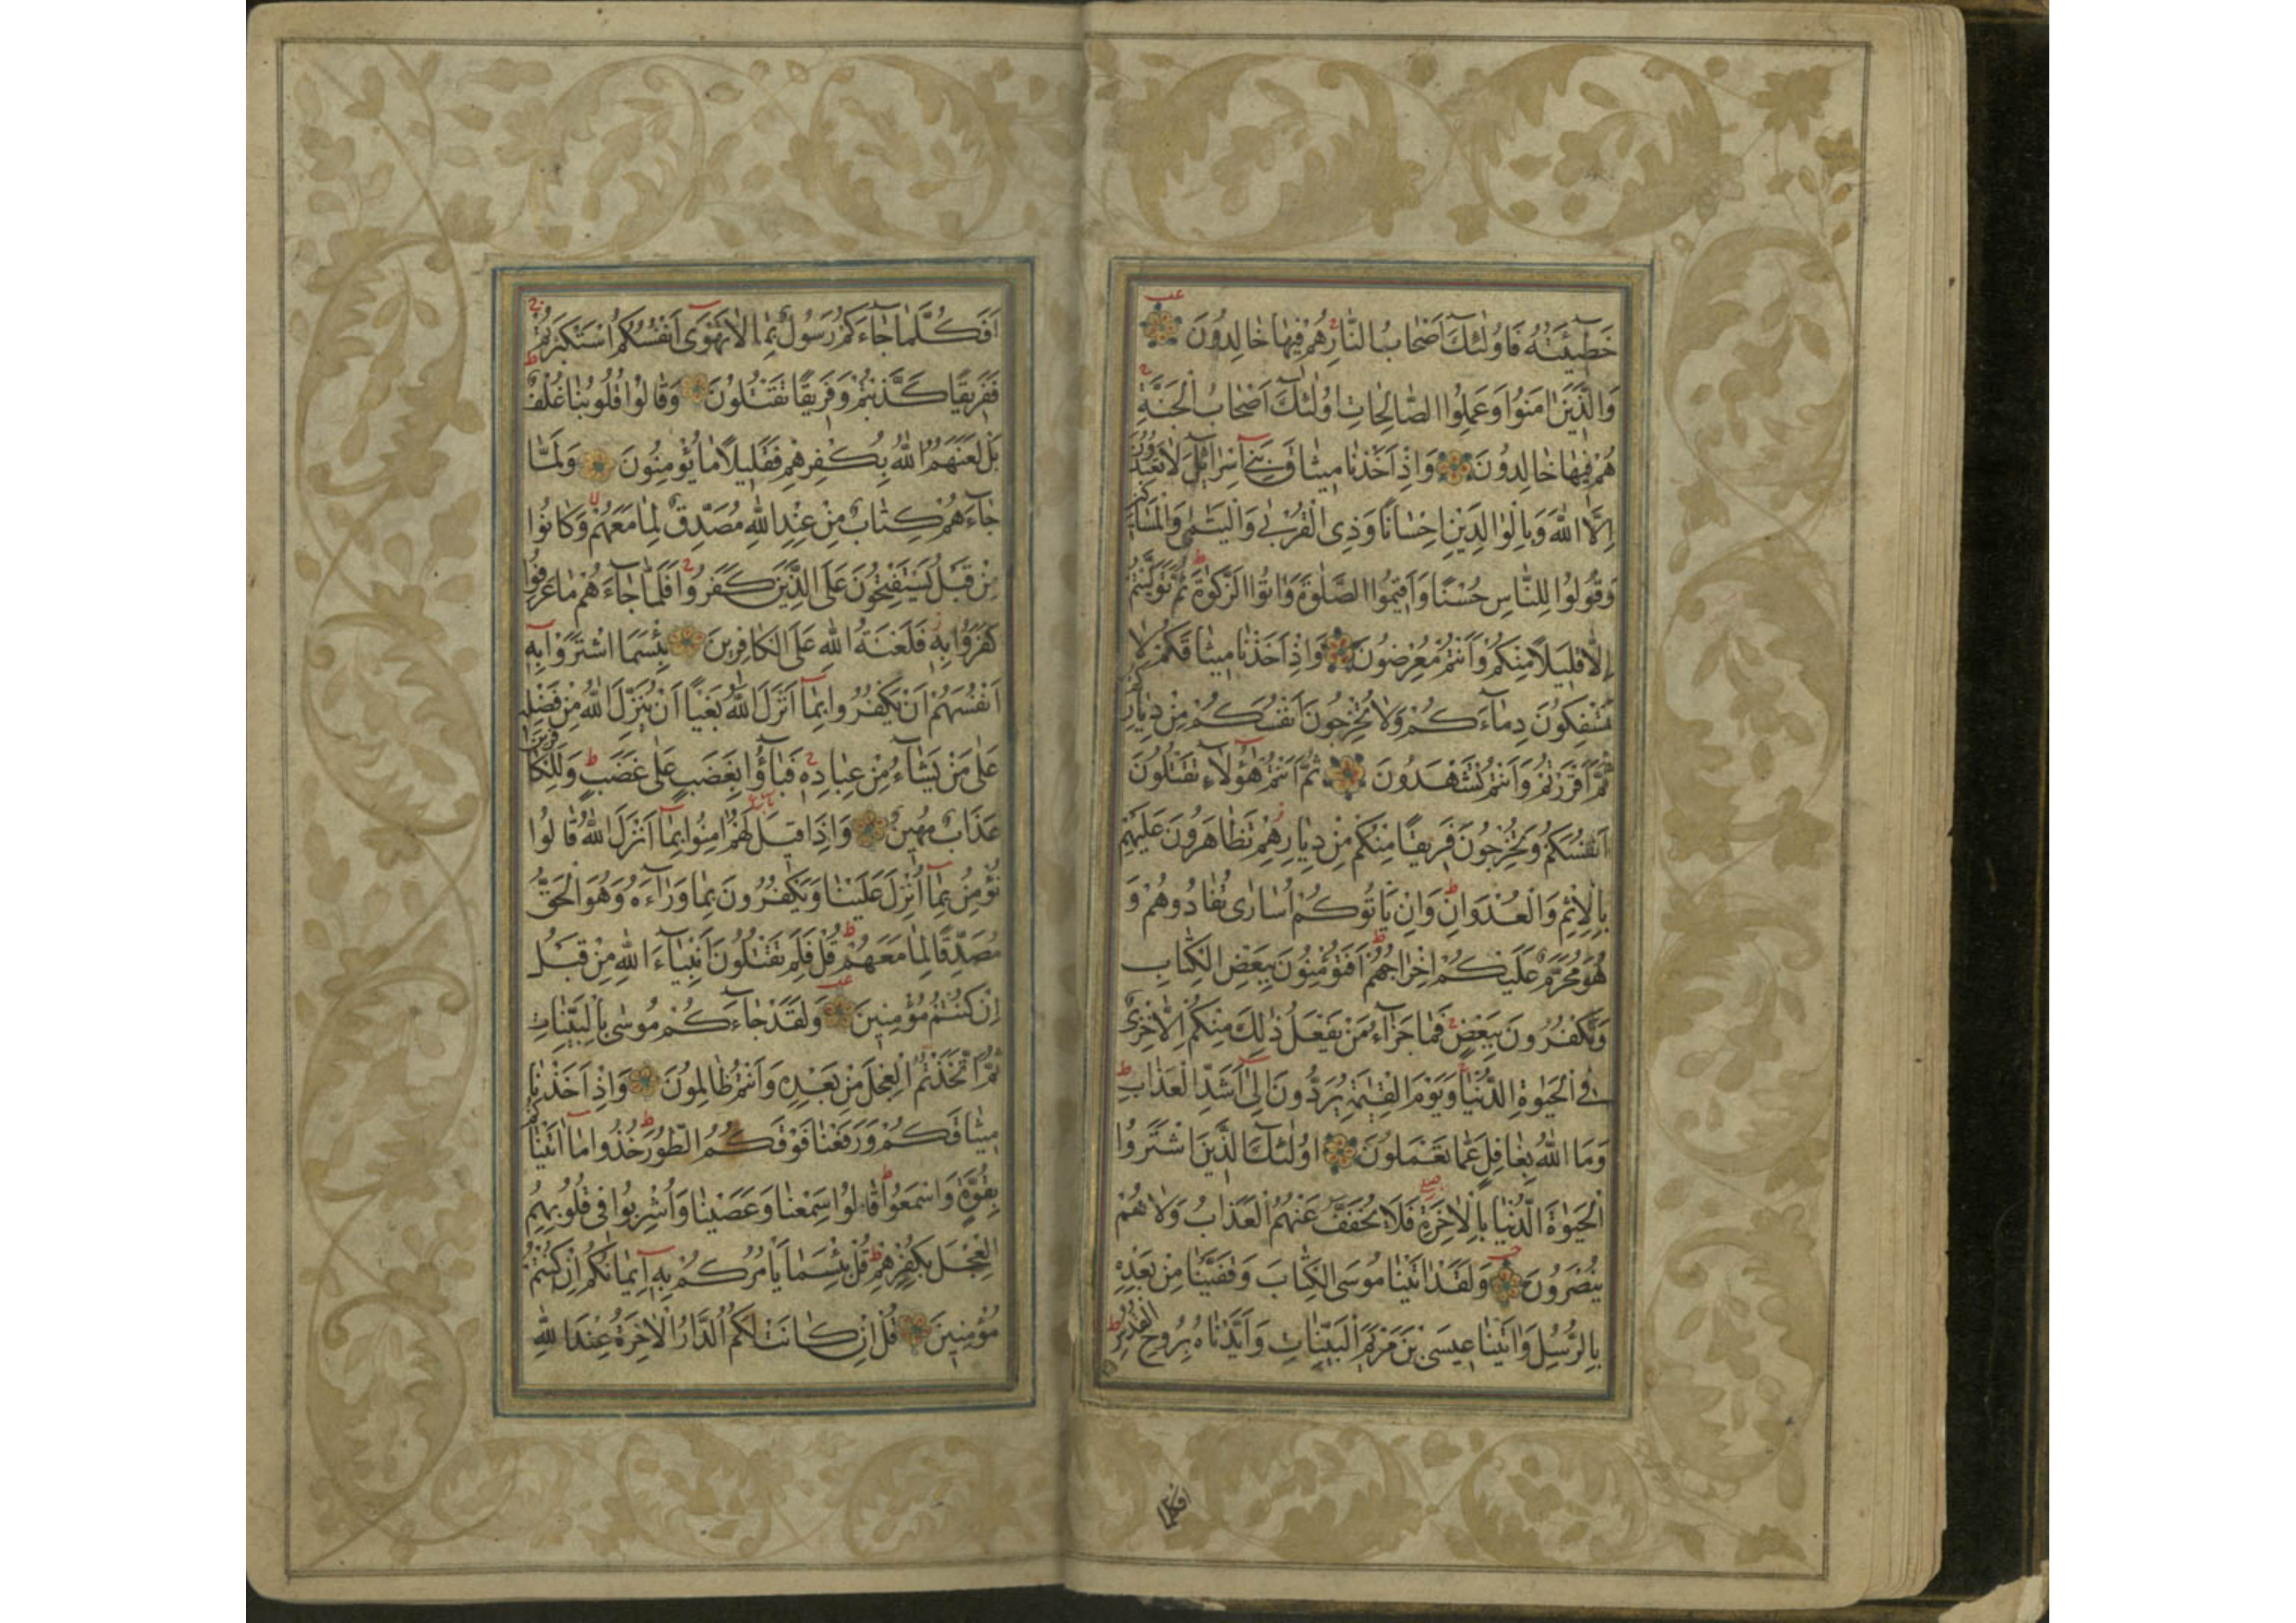 خَطِيئَتُهُ فَاُولٰئِكَ اَصْحَابُ النَّارِ هُمْ فِيهَا خَالِدُونَ
وَالَّذِينَ اٰمَنُوا وَعَمِلُوا الصَّالِحَاتِ اُولٰئِكَ اَصْحَابُ الْجَنَّةِ
هُمْ فِيهَا خَالِدُونَ وَاِذْ اَخَذْنَا مِيثَاقَ بَنِي اِسْرَائِلَ لَا تَعْبُدُونَ
اِلَّا اللّٰهَ وَبِالْوَالِدَيْنِ اِحْسَانًا وَذِي الْقُرْبٰى وَالْيَتٰمٰى وَالْمَسَاكِينِ
وَقُولُوا لِلنَّاسِ حُسْنًا وَاَقِيمُوا الصَّلٰوةَ وَاٰتُوا الزَّكٰوةَ ثُمَّ تَوَلَّيْتُمْ
اِلَّا قَلِيلًا مِنْكُمْ وَاَنْتُمْ مُعْرِضُونَ وَاِذْ اَخَذْنَا مِيثَاقَكُمْ لَا
تَسْفِكُونَ دِمَاءَكُمْ وَلَا تُخْرِجُونَ اَنْفُسَكُمْ مِنْ دِيَارِكُمْ
ثُمَّ اَقْرَرْتُمْ وَاَنْتُمْ تَشْهَدُونَ ثُمَّ اَنْتُمْ هٰؤُلَاءِ تَقْتُلُونَ
اَنْفُسَكُمْ وَتُخْرِجُونَ فَرِيقًا مِنْكُمْ مِنْ دِيَارِهِمْ تَظَاهَرُونَ عَلَيْهِمْ
بِالْاِثْمِ وَالْعُدْوَانِ وَاِنْ يَاْتُوكُمْ اُسَارٰى تُفَادُوهُمْ وَ
هُوَ مُحَرَّمٌ عَلَيْكُمْ اِخْرَاجُهُمْ اَفَتُؤْمِنُونَ بِبَعْضِ الْكِتَابِ
وَتَكْفُرُونَ بِبَعْضٍ فَمَا جَزَاءُ مَنْ يَفْعَلُ ذٰلِكَ مِنْكُمْ اِلَّا خِزْيٌ
فِي الْحَيٰوةِ الدُّنْيَا وَيَوْمَ الْقِيٰمَةِ يُرَدُّونَ اِلٰى اَشَدِّ الْعَذَابِ
وَمَا اللّٰهُ بِغَافِلٍ عَمَّا تَعْمَلُونَ اُولٰئِكَ الَّذِينَ اشْتَرَوُا
الْحَيٰوةَ الدُّنْيَا بِالْاٰخِرَةِ فَلَا يُخَفَّفُ عَنْهُمُ الْعَذَابُ وَلَا هُمْ
يُنْصَرُونَ وَلَقَدْ اٰتَيْنَا مُوسَى الْكِتَابَ وَقَفَّيْنَا مِنْ بَعْدِهِ
بِالرُّسُلِ وَاٰتَيْنَا عِيسَى بْنَ مَرْيَمَ الْبَيِّنَاتِ وَاَيَّدْنَاهُ بِرُوحِ الْقُدُسِ
افكلما
اَفَكُلَّمَا جَاءَكُمْ رَسُولٌ بِمَا لَا تَهْوٰى اَنْفُسُكُمُ اسْتَكْبَرْتُمْ
فَفَرِيقًا كَذَّبْتُمْ وَفَرِيقًا تَقْتُلُونَ وَقَالُوا قُلُوبُنَا غُلْفٌ
بَلْ لَعَنَهُمُ اللّٰهُ بِكُفْرِهِمْ فَقَلِيلًا مَا يُؤْمِنُونَ وَلَمَّا
جَاءَهُمْ كِتَابٌ مِنْ عِنْدِ اللّٰهِ مُصَدِّقٌ لِمَا مَعَهُمْ وَكَانُوا
مِنْ قَبْلُ يَسْتَفْتِحُونَ عَلَى الَّذِينَ كَفَرُوا فَلَمَّا جَاءَهُمْ مَا عَرَفُوا
كَفَرُوا بِهِ فَلَعْنَةُ اللّٰهِ عَلَى الْكَافِرِينَ بِئْسَمَا اشْتَرَوْا بِهِ
اَنْفُسَهُمْ اَنْ يَكْفُرُوا بِمَا اَنْزَلَ اللّٰهُ بَغْيًا اَنْ يُنَزِّلَ اللّٰهُ مِنْ فَضْلِهِ
عَلٰى مَنْ يَشَاءُ مِنْ عِبَادِهِ فَبَاؤُا بِغَضَبٍ عَلٰى غَضَبٍ وَلِلْكَافِرِينَ
عَذَابٌ مُهِينٌ وَاِذَا قِيلَ لَهُمْ اٰمِنُوا بِمَا اَنْزَلَ اللّٰهُ قَالُوا
نُؤْمِنُ بِمَا اُنْزِلَ عَلَيْنَا وَيَكْفُرُونَ بِمَا وَرَاءَهُ وَهُوَ الْحَقُّ
مُصَدِّقًا لِمَا مَعَهُمْ قُلْ فَلِمَ تَقْتُلُونَ اَنْبِيَاءَ اللّٰهِ مِنْ قَبْلُ
اِنْ كُنْتُمْ مُؤْمِنِينَ وَلَقَدْ جَاءَكُمْ مُوسٰى بِالْبَيِّنَاتِ
ثُمَّ اتَّخَذْتُمُ الْعِجْلَ مِنْ بَعْدِهِ وَاَنْتُمْ ظَالِمُونَ وَاِذْ اَخَذْنَا
مِيثَاقَكُمْ وَرَفَعْنَا فَوْقَكُمُ الطُّورَ خُذُوا مَا اٰتَيْنَاكُمْ
بِقُوَّةٍ وَاسْمَعُوا قَالُوا سَمِعْنَا وَعَصَيْنَا وَاُشْرِبُوا فِي قُلُوبِهِمُ
الْعِجْلَ بِكُفْرِهِمْ قُلْ بِئْسَمَا يَاْمُرُكُمْ بِهِ اِيمَانُكُمْ اِنْ كُنْتُمْ
مُؤْمِنِينَ قُلْ اِنْ كَانَتْ لَكُمُ الدَّارُ الْاٰخِرَةُ عِنْدَ اللّٰهِ